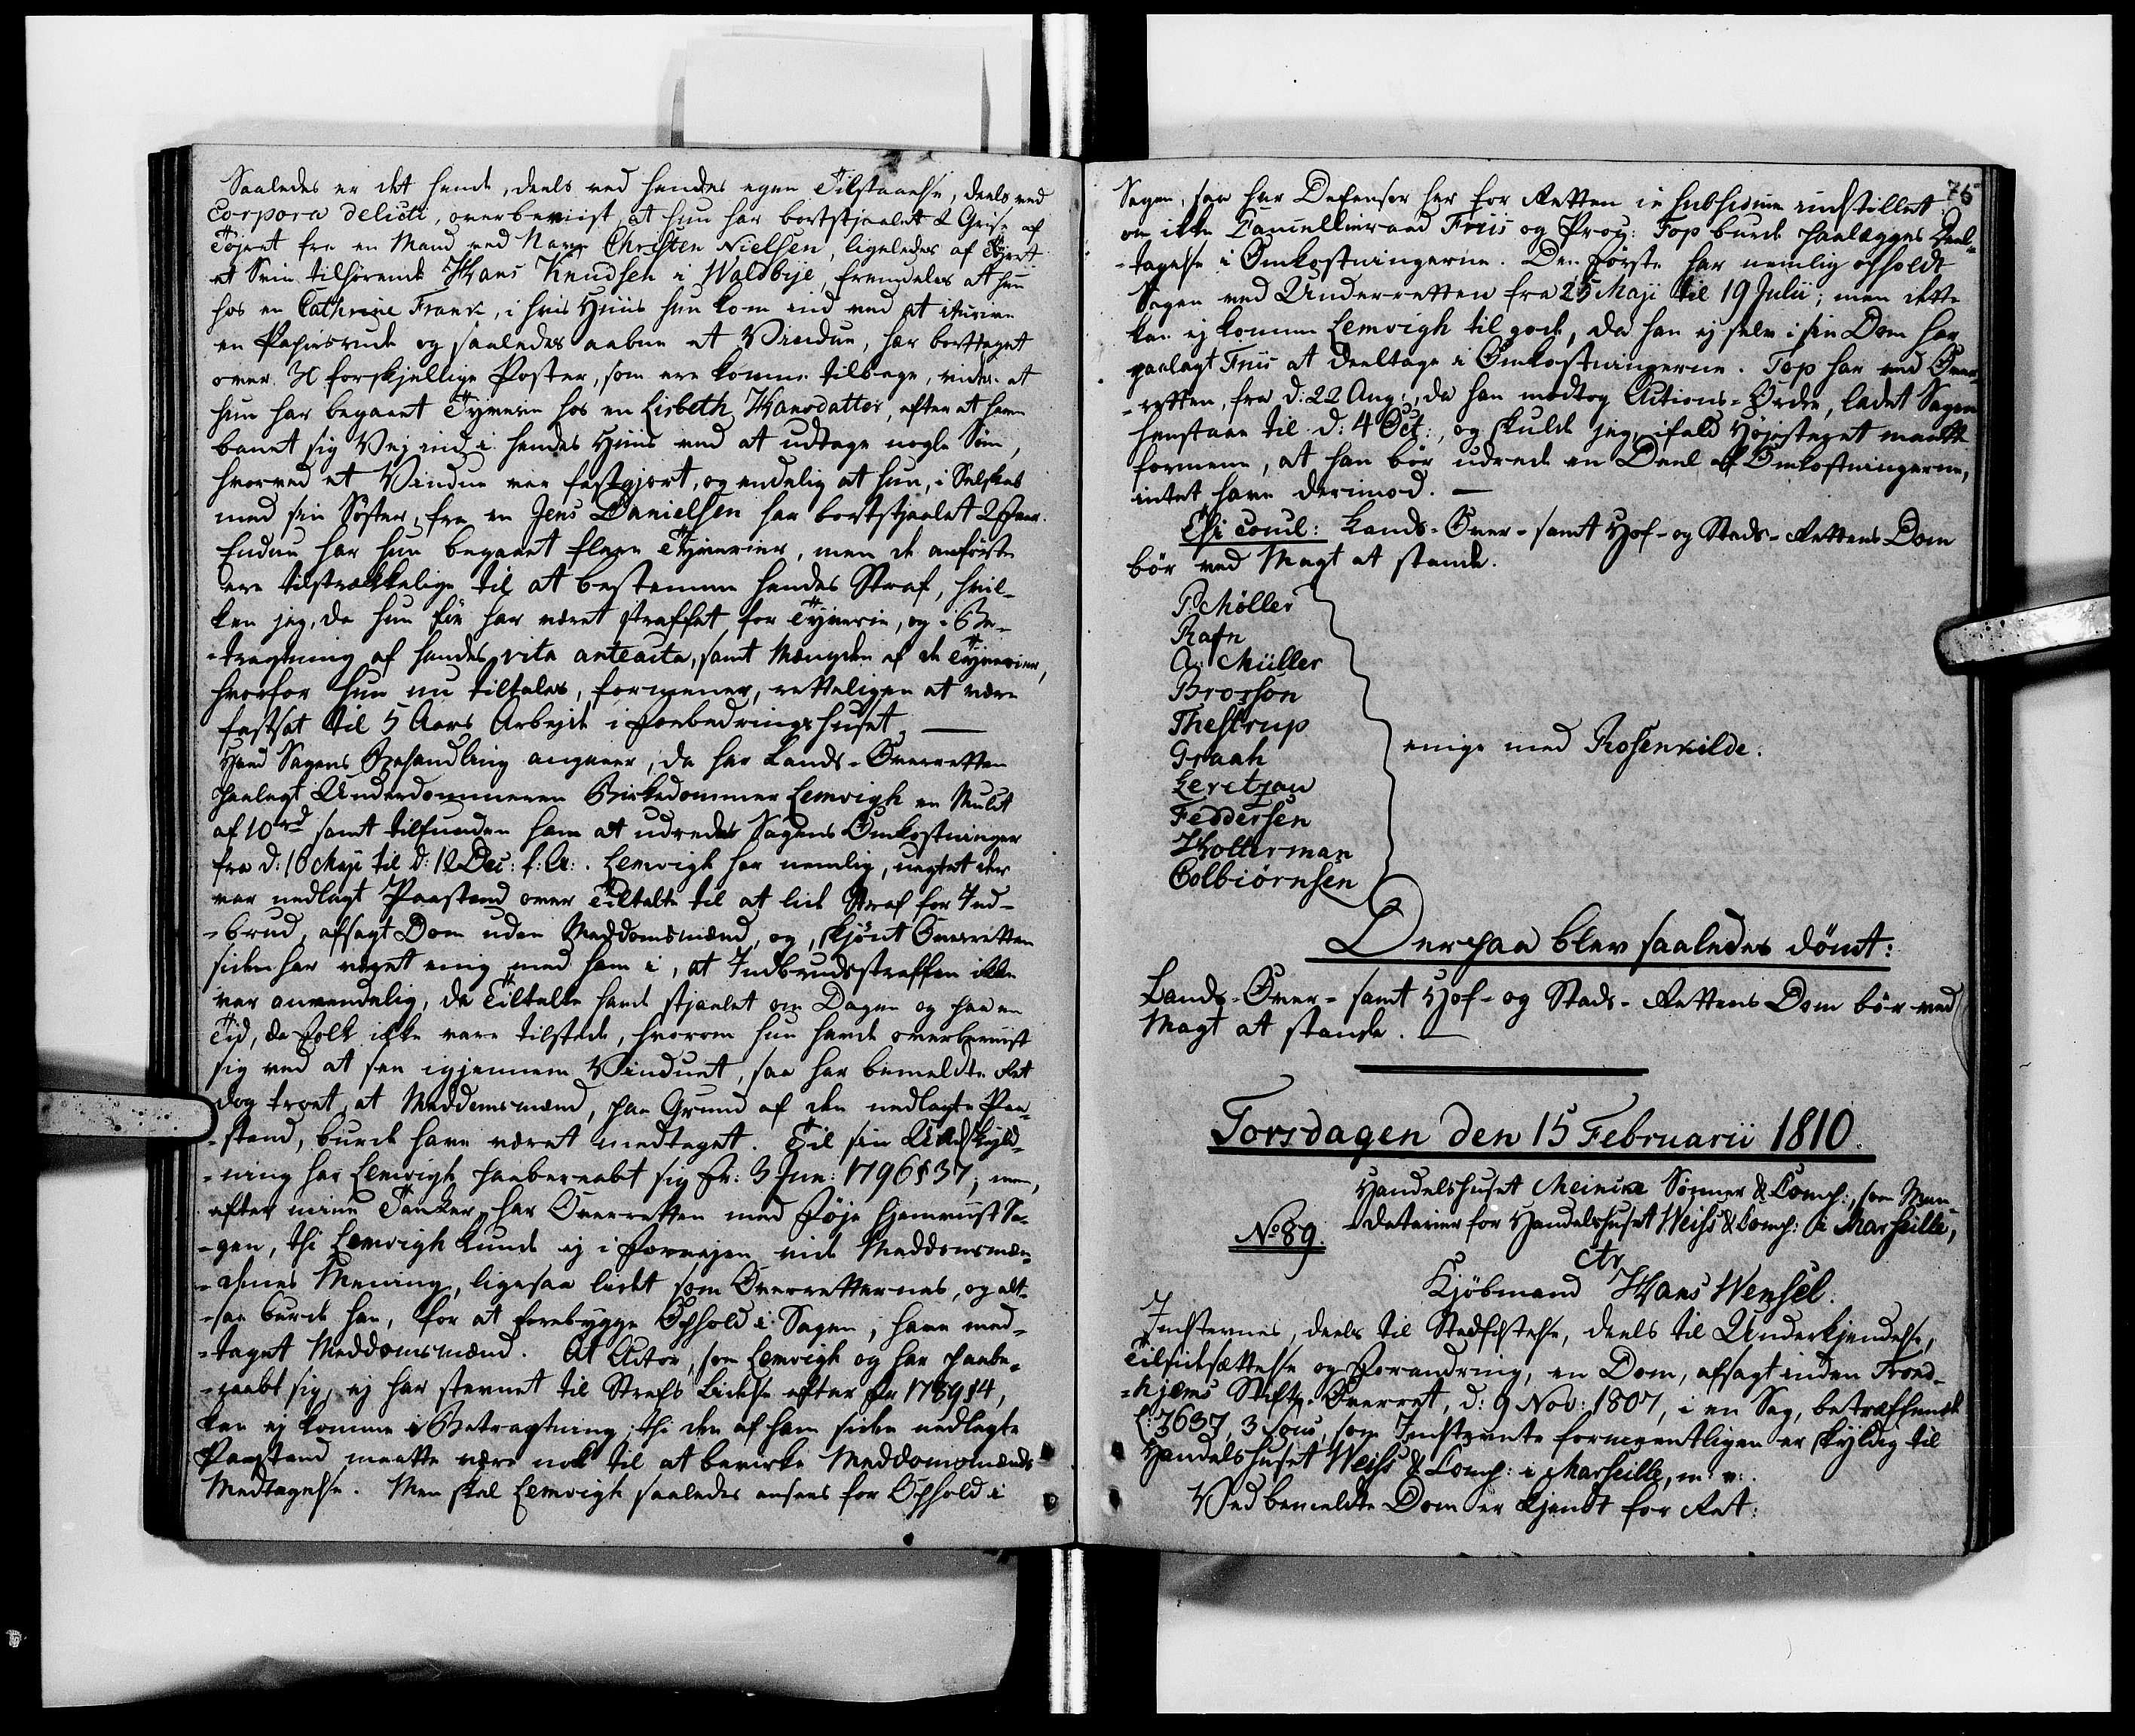 Saaledes er det hende, deels ved hendes egen Tilstaaelse, deels ved
Corpora delicti, overbeviist, at hun har bortstjaalet 2 Grise af
Tøjret fra en Mand ved Navn Christen Nielsen, ligeledes af Tøjret
et Sviin tilhørende Hans Knudsen i Waldbije, fremdeles at hun
hos en Cathrine Frank, i hvis Huus hun kom ind ved at
en Papirsrude og saaledes aabne et Vindue, har borttaget
over 30 forskjellige Poster, som ere komne tilbage, videre at
hun har begaaet Tyverie hos en Lisbeth Hansdatter, efter at have
banet sig Vej ind i hendes Huus ved at udtage nogle Søm,
hvorved et Vindue var fastgjort, og endelig at hun, i Selskab
med sin Søster, fra en Jens Danielsen har bortstjaalet 2 Faar.
Endnu har hun begaaet flere Tyverier, men de anførte
ere tilstrækkelige til at bestemme hendes Straf, hvil-
ken jeg, da hun før har været straffet for Tyverie, og i Be-
-tragtning af hendes vita anteacta, samt Mængden af de Tyverier,
hvorfor hun nu tiltales, formener, retteligen at være
fastsat til 5 Aars Arbejde i Forbedringshuset. —
Hvad Sagens Behandling angaaer, da har Lands-Overretten
paalagt Underdommeren Birkedommer Lemvigh en Mulct
af 10 rd samt tilfunden ham at udrede Sagens Omkostninger
fra d: 16 Maji til d: 12 Dec: f: A:. Lemvigh har nemlig, uagtet der
var nedlagt Paastand over Tiltalte til at lide Straf for Ind-
-brud, afsagt Dom uden Meddomsmænd, og, skjønt Overretten
siden har været enig med ham i, at Indbrudsstraffen ikke
var anvendelig, da Tiltalte havde stjaalet om Dagen og paa en
Tid, da Folk ikke vare tilstede, hvorom hun havde overbeviist
sig ved at see igjennem Vinduet, saa har bemeldte Ret
dog troet, at Meddomsmænd, paa Grund af den nedlagte Paa-
-stand, burde have været medtaget. Til sin Undskyld-
-ning har Lemvigh paaberaabt sig Fr: 3 Jun: 1796 § 37; men,
efter mine Tanker, har Overretten med Føje hjemviist Sa-
-gen, thi Lemvigh kunde ej i Forvejen vide Meddomsmæn-
-denes Mening, ligesaa lidet som Overretternes, og alt-
-saa burde han, for at forebygge Ophold i Sagen, have med-
-taget Meddomsmænd. At Actor, som Lemvigh og har paabe-
-raabt sig, ej har stevnet til Strafs Lidelse efter Fr 1789 § 4,
kan ej komme i Betragtning; thi den af ham siden nedlagte
Paastand maatte være nok til at bevirke Meddomsmænds
Medtagelse. Men skal Lemvigh saaledes ansees for Ophold i
75
Sagen, saa har Defensor her for Retten in subsidium indstillet,
om ikke Cancellieraad Friis og Proc: Top burde paalægges Deel-
-tagelse i Omkostningerne. Den Første har nemlig opholdt
Sagen ved Underretten fra 25 Maji til 19 Julii; men dette
kan ej komme Lemvigh til gode, da han ej selv i sin Dom har
paalagt Friis at deeltage i Omkostningerne. Top har ved Over-
-retten, fra d: 22 Aug:, da han modtog Actions-Ordre, ladet Sagen
henstaae til d: 4 Oct:, og skulde jeg, ifald Højesteret maatte
formene, at han bør udrede en Deel af Omkostningerne,
intet have derimod. —
Thi concl: Lands-Over- samt Hof- og Stads-Rettens Dom
bør ved Magt at stande.
P. Møller
Rafn
A: Müller
Brorson
Thestrup
Graah
Zeretzau
Feddersen
Kolterman
Colbiørnsen
enige med Rosenkilde.
Derpaa blev saaledes dømt:
Lands-Over- samt Hof- og Stads-Rettens Dom bør ved
Magt at stande. —
Torsdagen den 15 Februarii 1810.
Handelshuset Meincke Sønner & Comp:, som Man-
No 89. -datarier for Handelshuset Weiss & Comp: i Marseille,
ctr
Kjøbmand Hans Wensel.
Indstevnes, deels til Stadfæstelse, deels til Underkjendelse,
Tilsidesættelse og Forandring, en Dom, afsagt inden Trond-
-hjems Stifts-Overret, d: 9 Nov: 1807, i en Sag, betræffende
£: 3637, 3 Sous, som Indstevnte formeentligen er skyldig til
Handelshuset Weiss & Comp: i Marseille, m: v:.
Ved bemeldte Dom er kjendt for Ret: